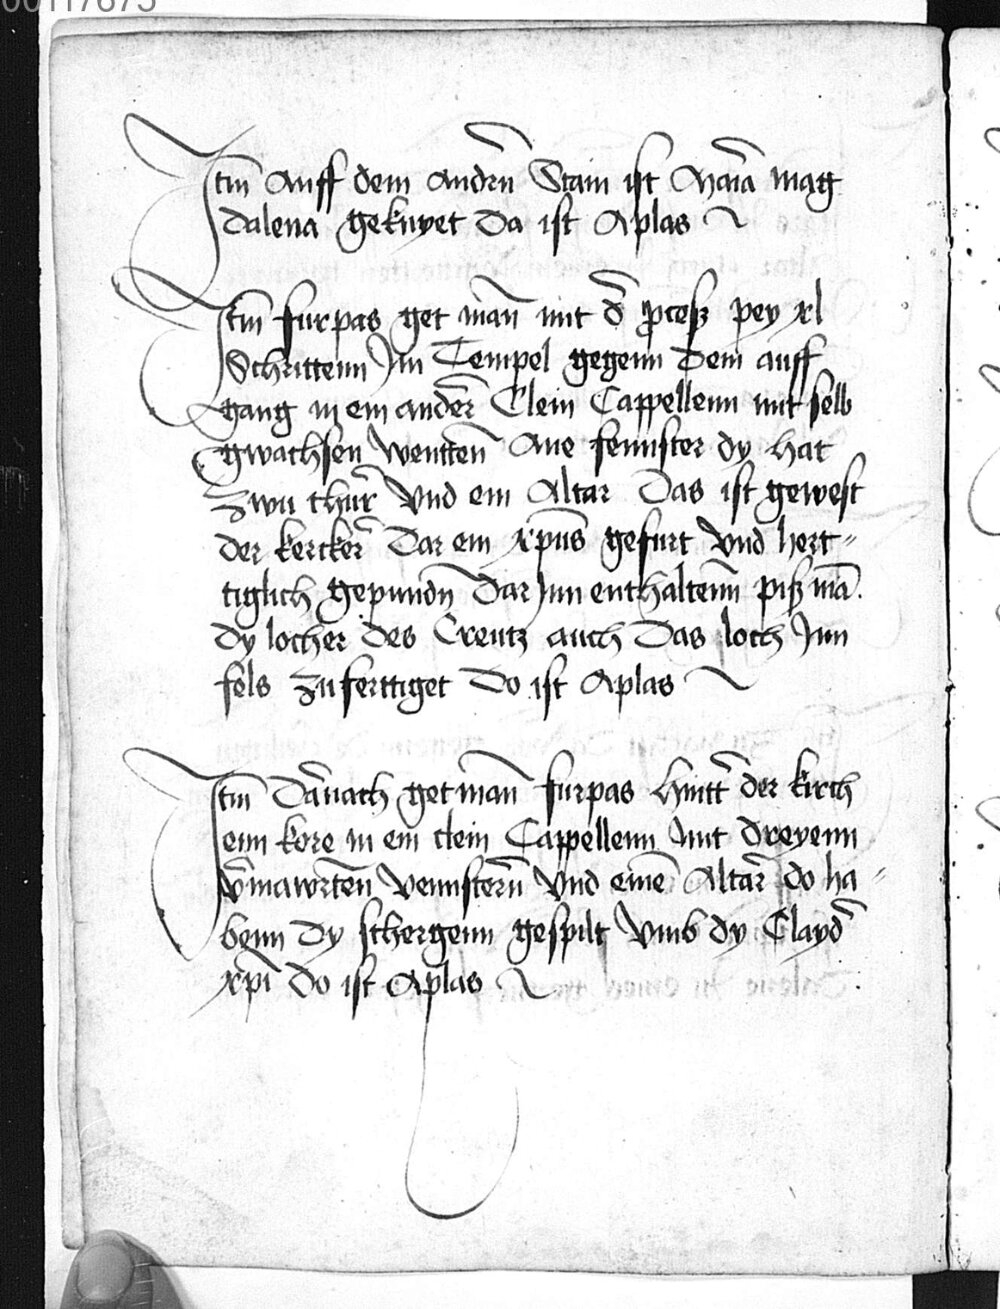 00117675
Itm Auff dem andern̄ Stain ist Maīa mag
dalena geknyet Da ist Aplas
Itm furpas get man̄ mit d̄ proceß pey xl
Schrittenn Jm Tempel gegenn Dem auff
gang in ein ander̄ Clein Cappellenn mit selb
gwachsen Wentten̄ Ane fennster dy hat
zwu thur̄ Vnd ein Altar Das ist gewest
der kercker̄ Dar ein xp̄us gefurt Vnd hert-
tiglich gepundn̄ Dar Jnn enthaltenn̄ piß mā.
dy locher des Creutz auch Das loch Jnn
fels zu ferttiget Do ist Aplas
Itm Dar̄nach get man̄ furpas hintt̄ der kirch
enn kore in ein clein Cappellenn mit dreyenn
v̄mawrten̄ Vennstern̄ Vnd eine̅ Altar̄ do ha-
benn Dy schergenn gespilt Vmb dy Clayd̄
xp̄i Do ist Aplas